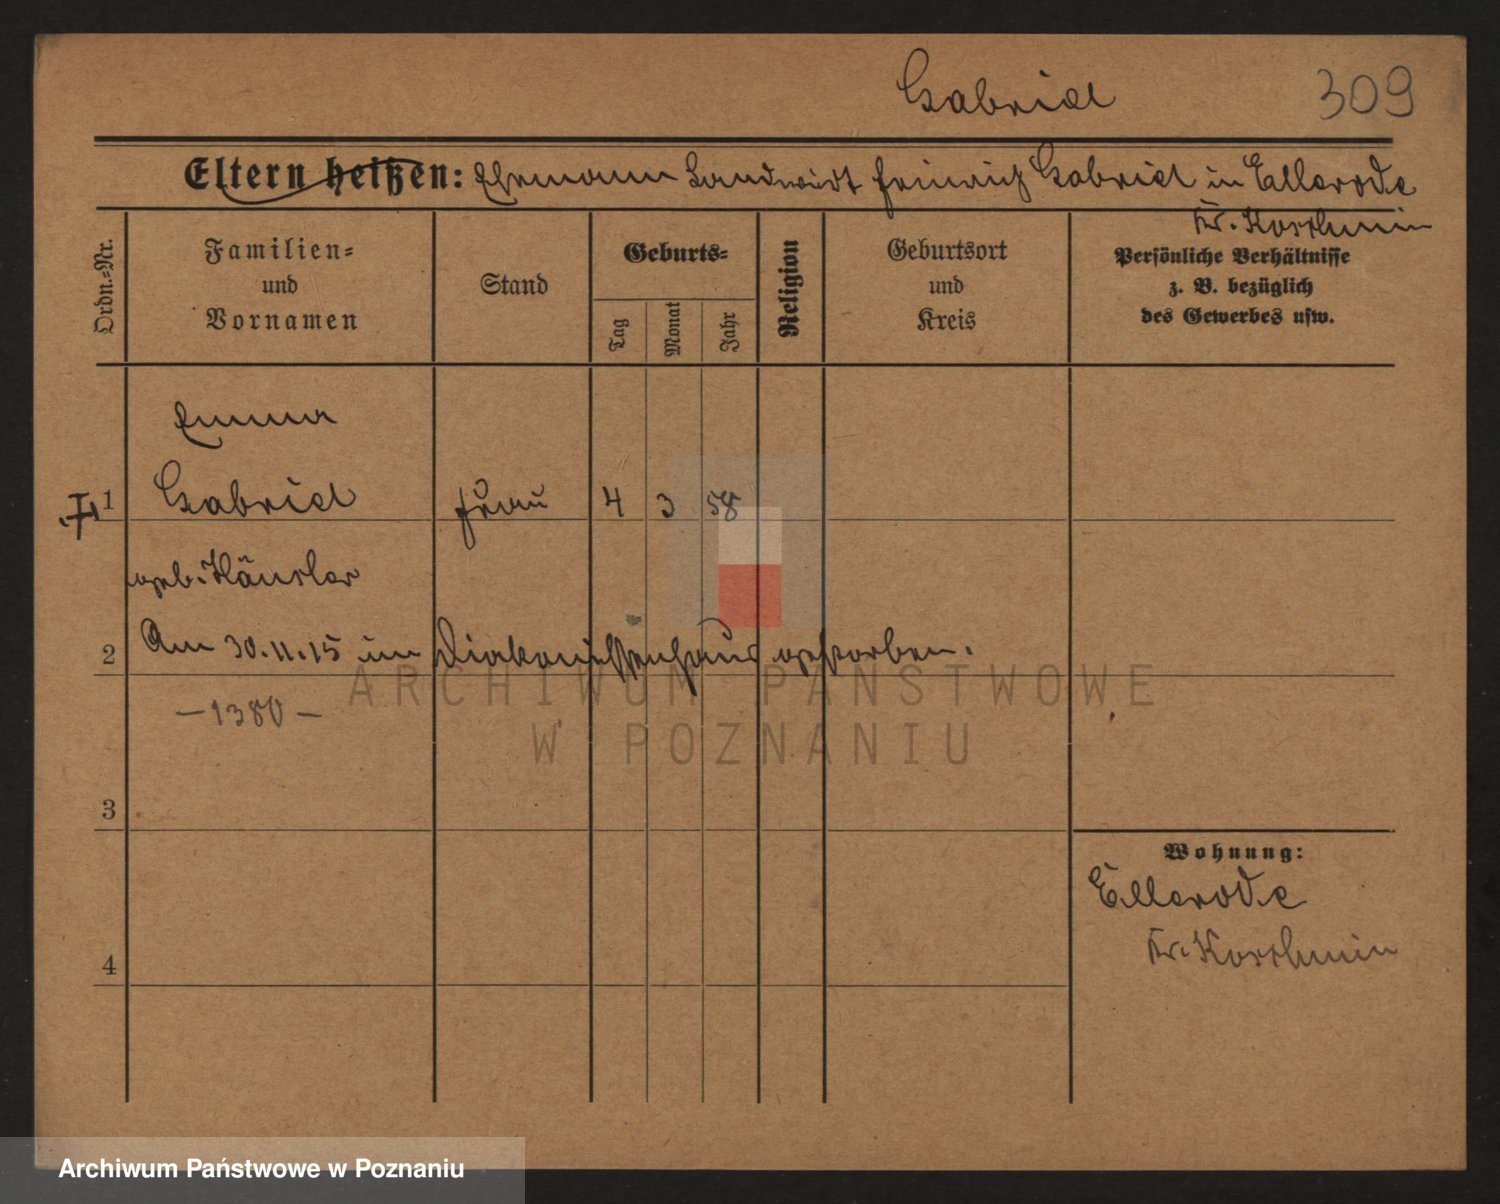 Gabriel
309
Eltern heißen: Ehemann Landwirt Heinrich Gabriel in Ellerode
Kr. Koschmin
Ordn.-Nr.
Familien-
und
Vornamen
Stand
Geburts-
Tag
Monat
Jahr
Religion
Geburtsort
und
Kreis
Persönliche Verhältnisse
z. B. bezüglich
des Gewerbes usw.
Emma
1 Gabriel Frau 4 3 58
geb. Hänsler
2 Am 30.11.15 im Diakonissenhaus gestorben.
– 1380 –
3
Wohnung:
Ellerode
Kr. Koschmin
4
ARCHIWUM PAŃSTWOWE
W POZNANIU
Archiwum Państwowe w Poznaniu